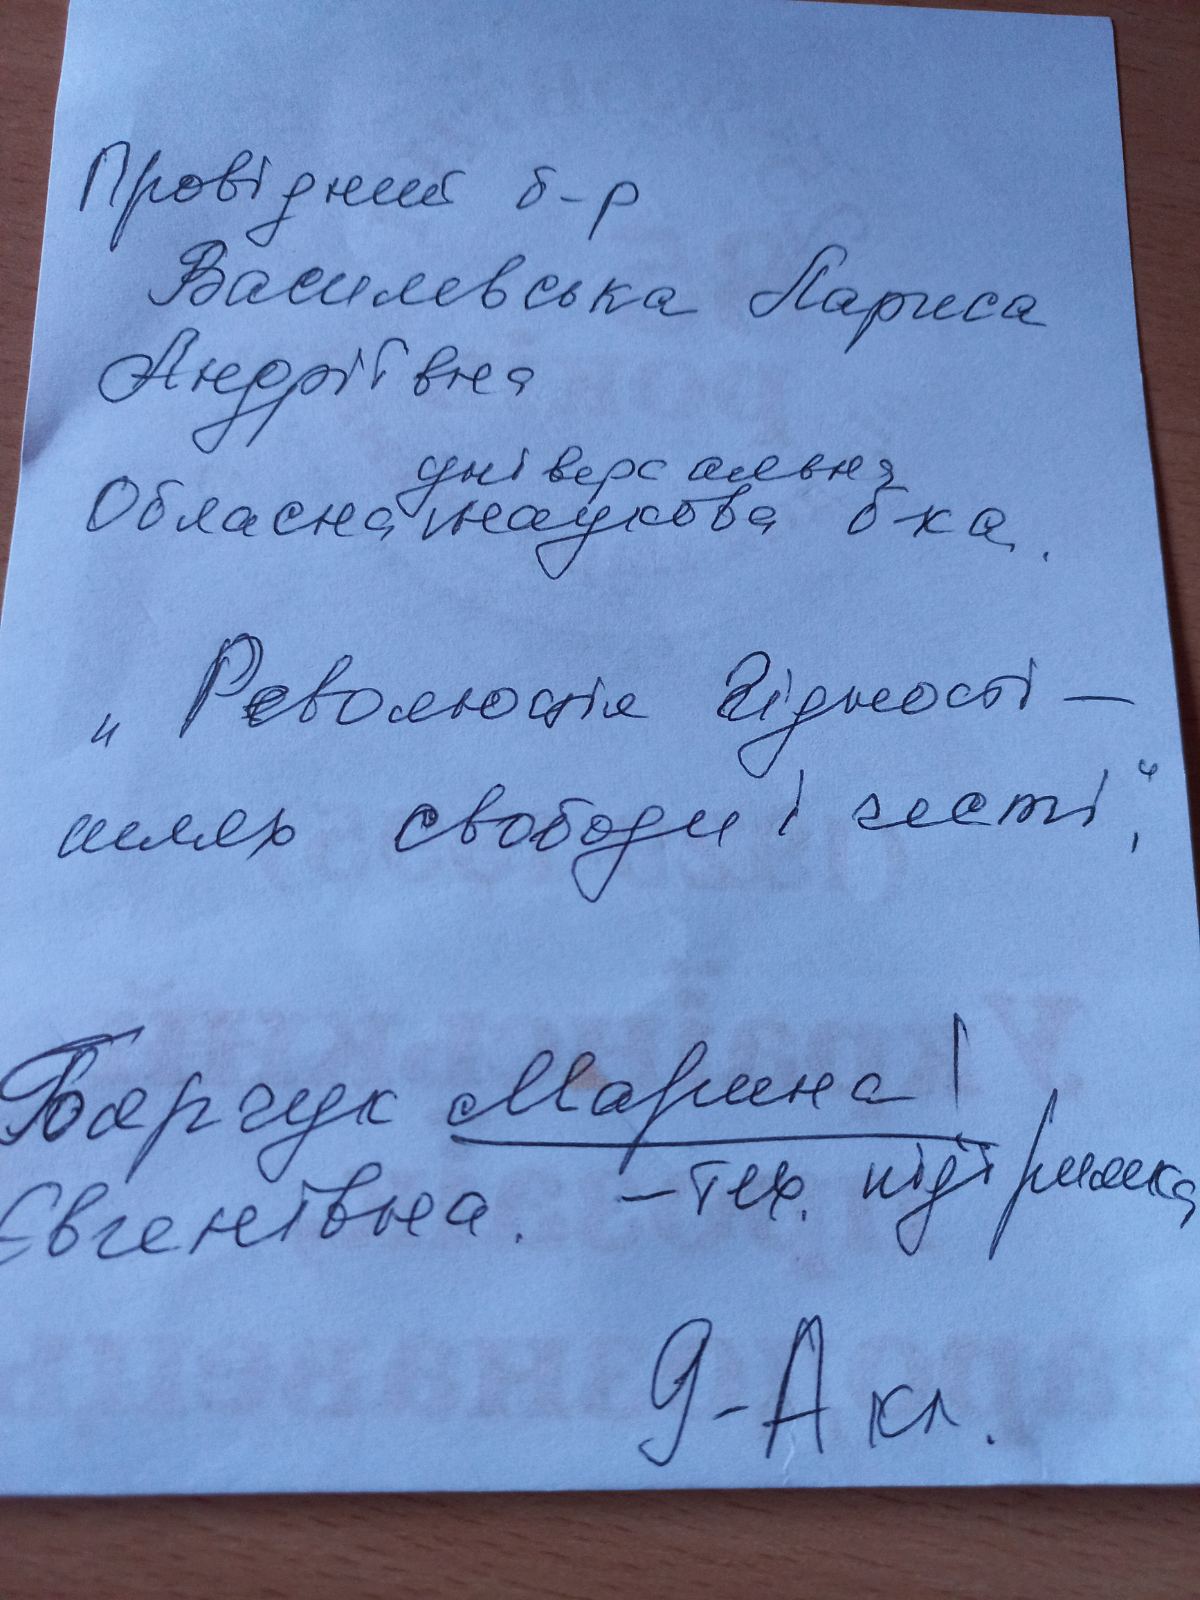 Провідний б-р
Василевська Лариса
Андріївна
універсальна
Обласна наукова б-ка.
„Революція Гідності –
шлях свободи і честі",
Боярчук Марина
Євгенівна. – тех. підтримка
9-А кл.